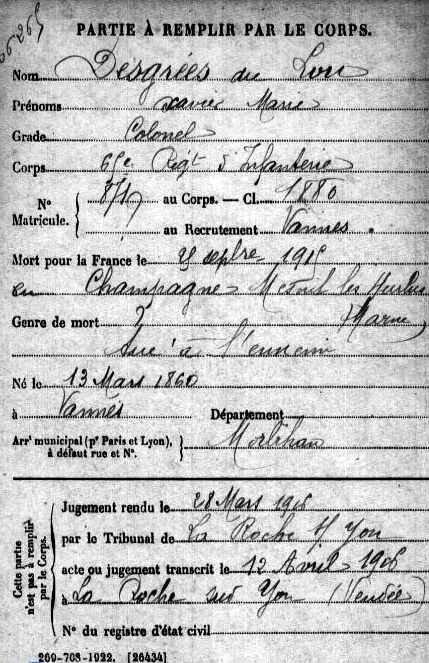 PARTIE À REMPLIR PAR LE CORPS.
Nom Desgrées du Lou
Prénoms Xavier Marie
Grade Colonel
Corps 65e Régt d'Infanterie
N° Matricule. au Corps. — Cl. 1880
au Recrutement Vannes
Mort pour la France le septbre 1915
en Champagne Mesnil les Hurlus
(Marne)
Genre de mort
Tué à l'ennemi
Né le 13 Mars 1860
à Vannes Département
Arr^t municipal (p^r Paris et Lyon), à défaut rue et N°. Morbihan
Cette partie n'est pas à remplir par le Corps.
Jugement rendu le 28 Mars
par le Tribunal de La Roche s/ Yon
acte ou jugement transcrit le 12 Avril
à La Roche sur Yon (Vendée)
N° du registre d'état civil
269-708-1922. [26434]